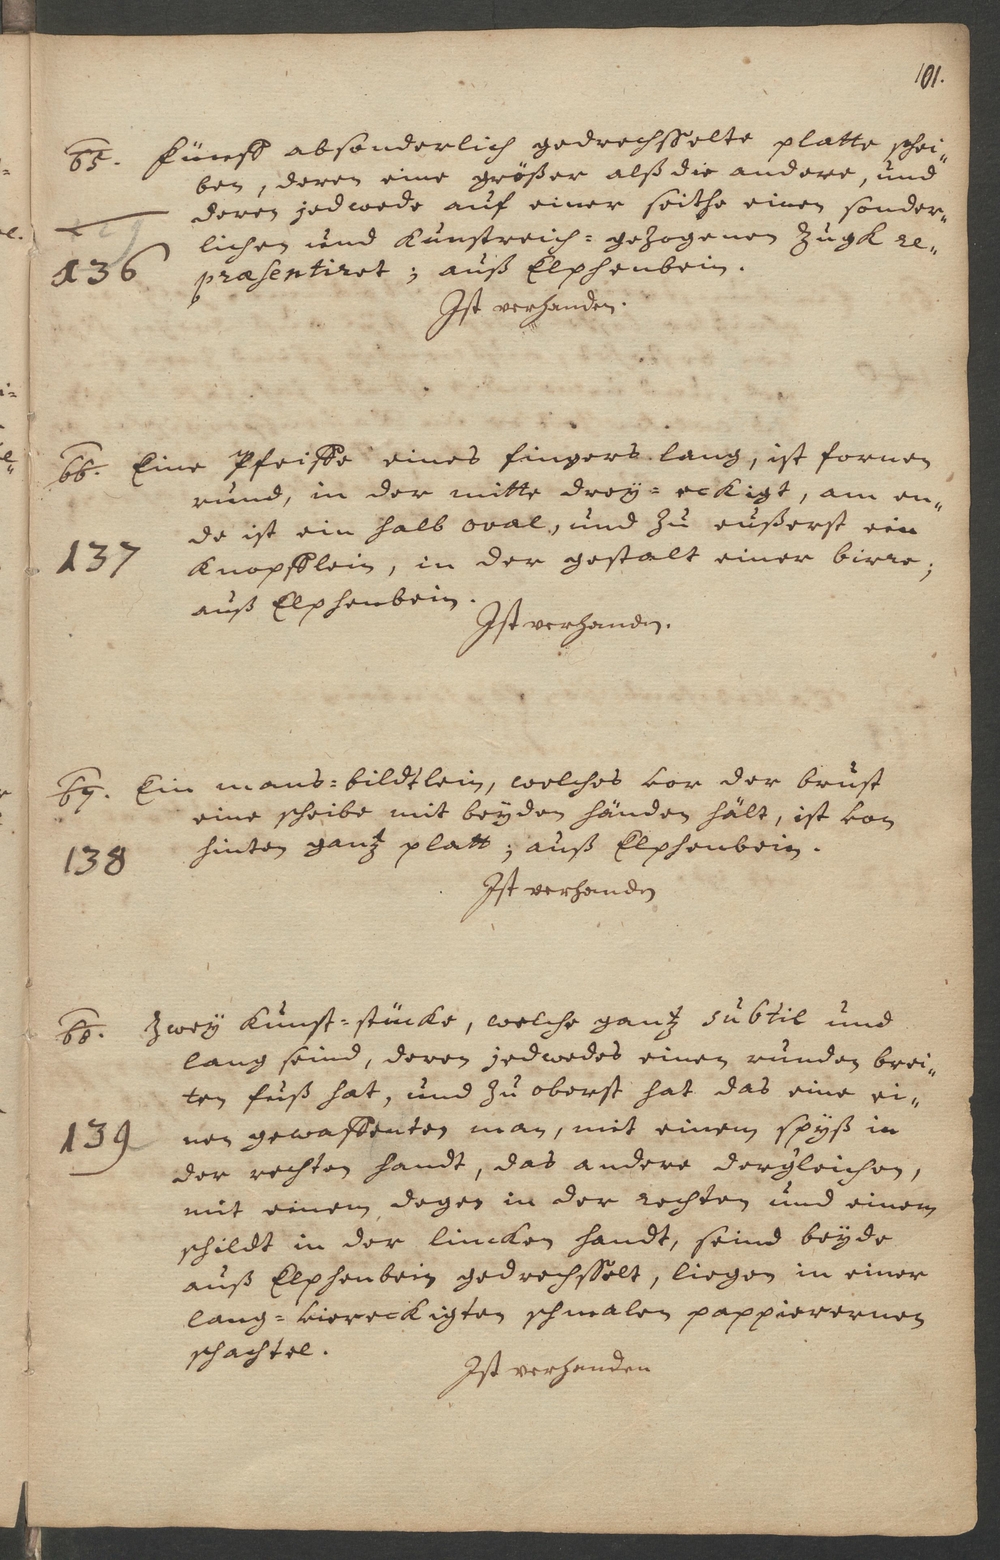 101.
65. Fünff absonderlich gedrechsselte platte schei„
ben, deren eine größer alß die andere, und
deren jedwede auf einer seithe einen sonder„
lichen und Kunstreich=gezogenen Zugk re„
136
præsentiret; auß Elphenbein.
Ist verhanden.
66. Eine Pfeiffe eines fingers lang, ist fornen
rund, in der mitte drey=eckigt, am en„
de ist ein halb oval, und zu eußerst ein
137
Knopfflein, in der gestalt einer birre;
auß Elphenbein.
Ist verhanden.
67. Ein mans=bildtlein, welches vor der brust
eine scheibe mit beyden händen hält, ist von
138
hinten gantz platt; auß Elphenbein.
Ist verhanden
68. Zwey Kunst=stücke, welche gantz subtil und
lang seind, deren jedwedes einen runden brei„
ten fuß hat, und zu oberst hat das eine ei„
139
nen gewaffenten man, mit einem spyß in
der rechten handt, das andere dergleichen,
mit einem degen in der rechten und einem
schildt in der lincken handt, seind beyde
auß Elphenbein gedrechsselt, liegen in einer
lang=viereckigten schmalen pappierernen
schachtel.
Ist verhanden